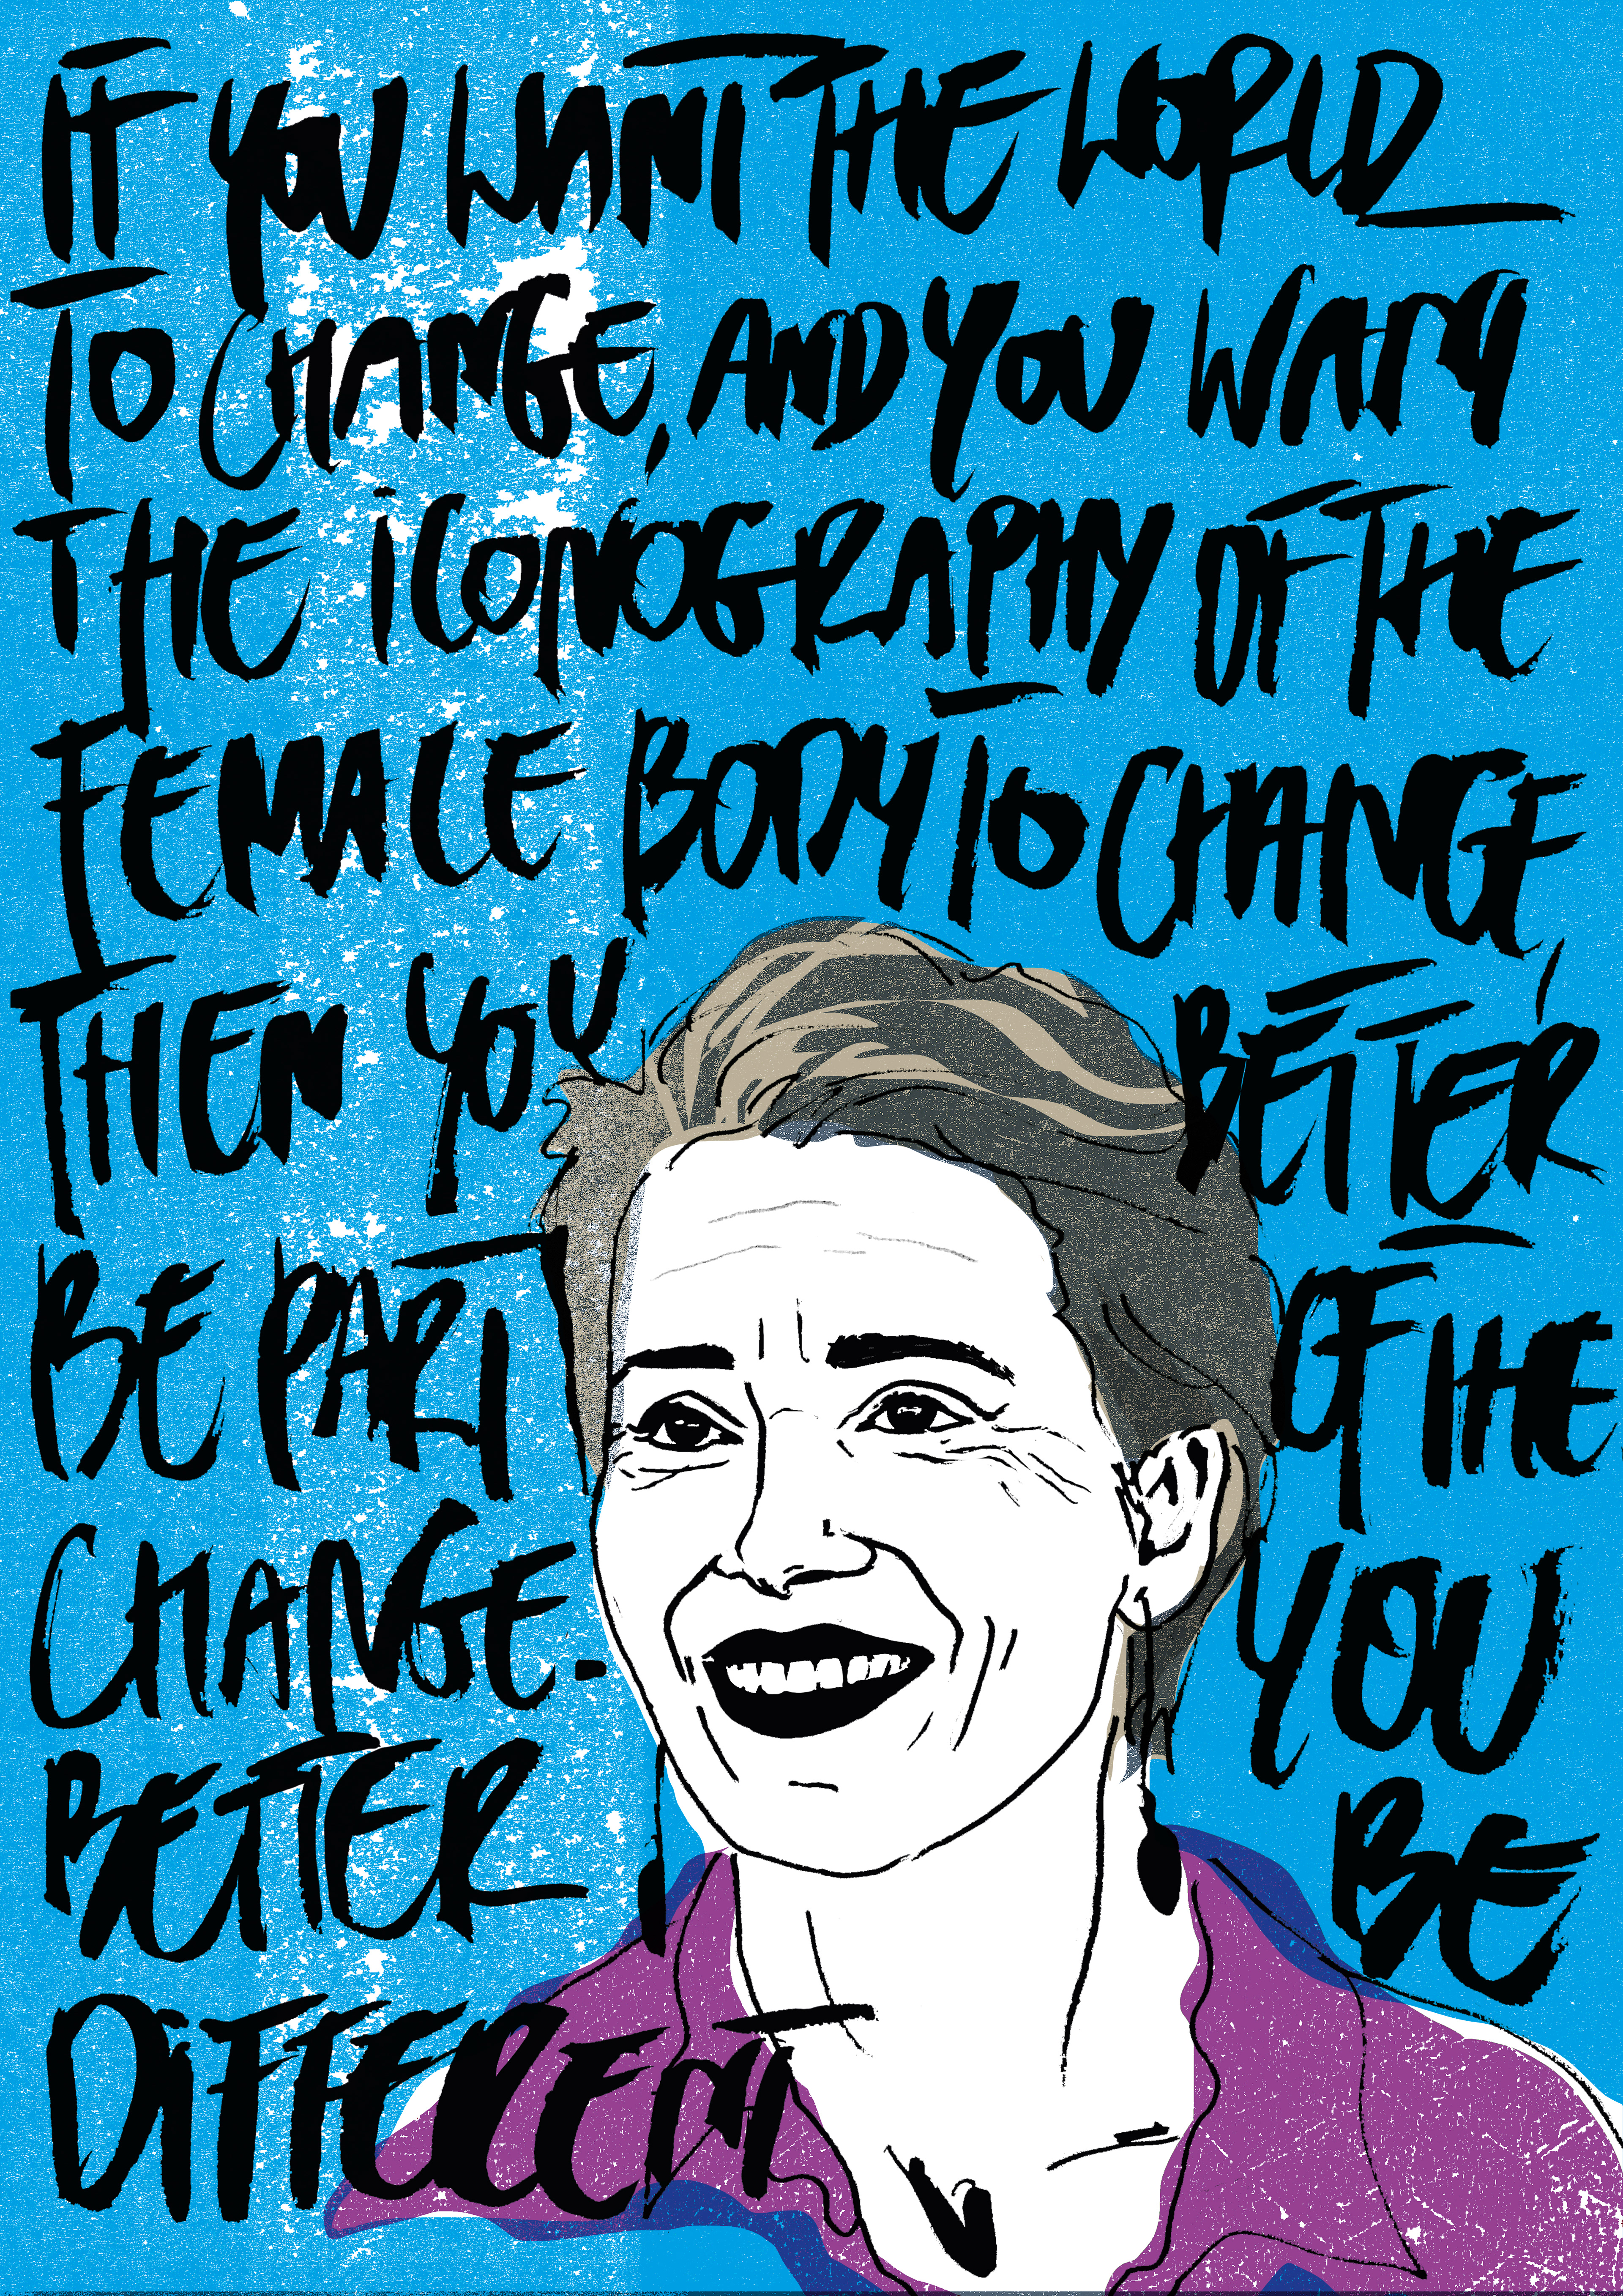 IF YOU WANT THE WORLD
TO CHANGE, AND YOU WANT
THE ICONOGRAPHY OF THE
FEMALE BODY TO CHANGE,
THEN YOU BETTER
BE PART OF THE
CHANGE. YOU
BETTER BE
DIFFERENT